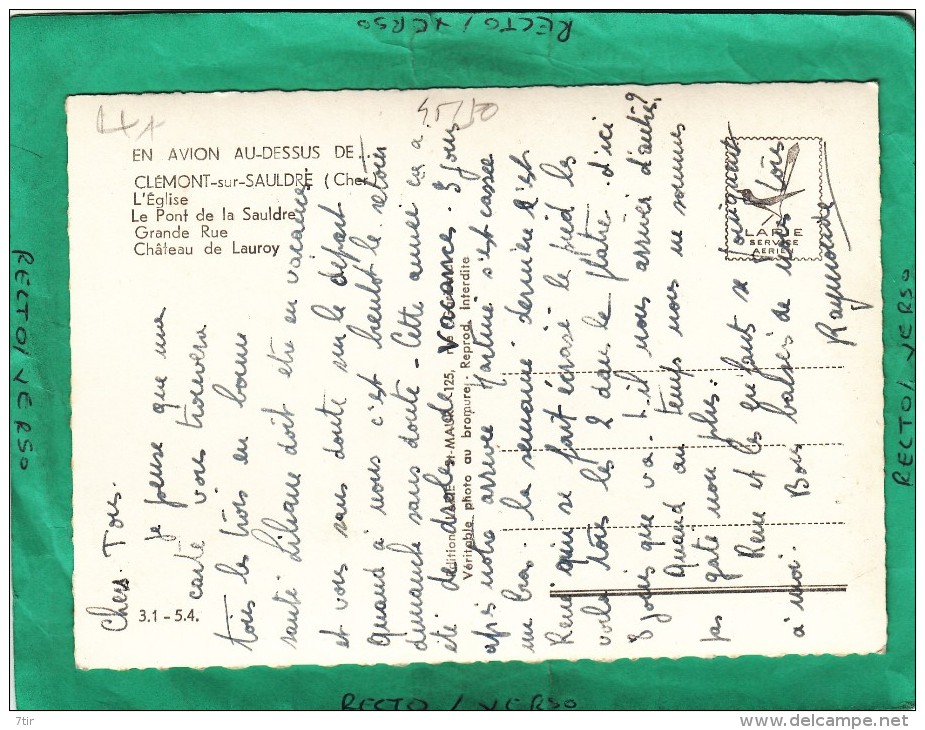 RECTO / VERSO
4x
45/50
EN AVION AU-DESSUS DE...
CLÉMONT-sur-SAULDRE (Cher)
L'Église
Le Pont de la Sauldre
Grande Rue
Château de Lauroy
LAPIE
SERVICE
AERIEN
3.1 - 5.4.
Éditions LAPIE St-MAUR 125, rue
Véritable photo au bromure. Reprod. Interdite
Chers Tous.
Je pense que ma
carte vous trouvera
tous les trois en bonne
santé. Liliane doit être en vacances
et vous sans doute sur le départ.
Quand à nous c'est bientôt le retour
dimanche sans doute - Cette année ça a
été de drôles de vacances. 3 jours
après notre arrivée Martine s'est cassée
un bras. la semaine dernière c'est
René qui se fait écrasé le pied les
voila tous les 2 dans le platre. d'ici
8 jours que va-t-il nous arriver d'autre?
Quand au temps nous ne sommes
pas gaté non plus.
René et les enfants se joignent
à moi. Bons baisers de nous tous
Raymonde
RECTO / VERSO
RECTO / VERSO
RECTO / VERSO
7tir
www.delcampe.net